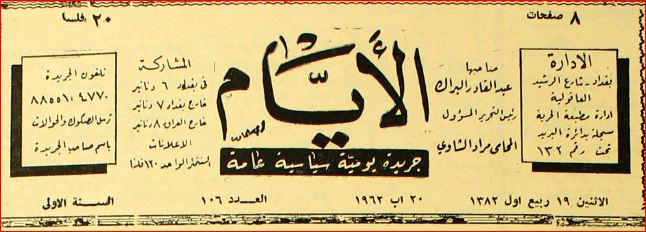 ٨ صفحات
٢٠ فلسا
الادارة
بغداد ـ شارع الرشيد
العاقولية
ادارة مطبعة الحرية
سجلت بدائرة البريد
تحت رقم ١٣٢
صاحبها
عبدالقادر البراك
رئيس التحرير المسؤول
المحامي مراد الشاوي
الأيام
جريدة يومية سياسية عامة
المشاركة
في بغداد ٦ دنانير
خارج بغداد ٧ دنانير
خارج العراق ٨ دنانير
الاعلانات
السنتمتر الواحد ١٢٠ فلسا
تلفون الجريدة
٤٧٧٠ / ٨٨٥٥١
ترسل الصكوك والحوالات
باسم صاحب الجريدة
الاثنين ١٩ ربيع اول ١٣٨٢
٢٠ اب ١٩٦٢
العدد ١٠٦
السنة الاولى